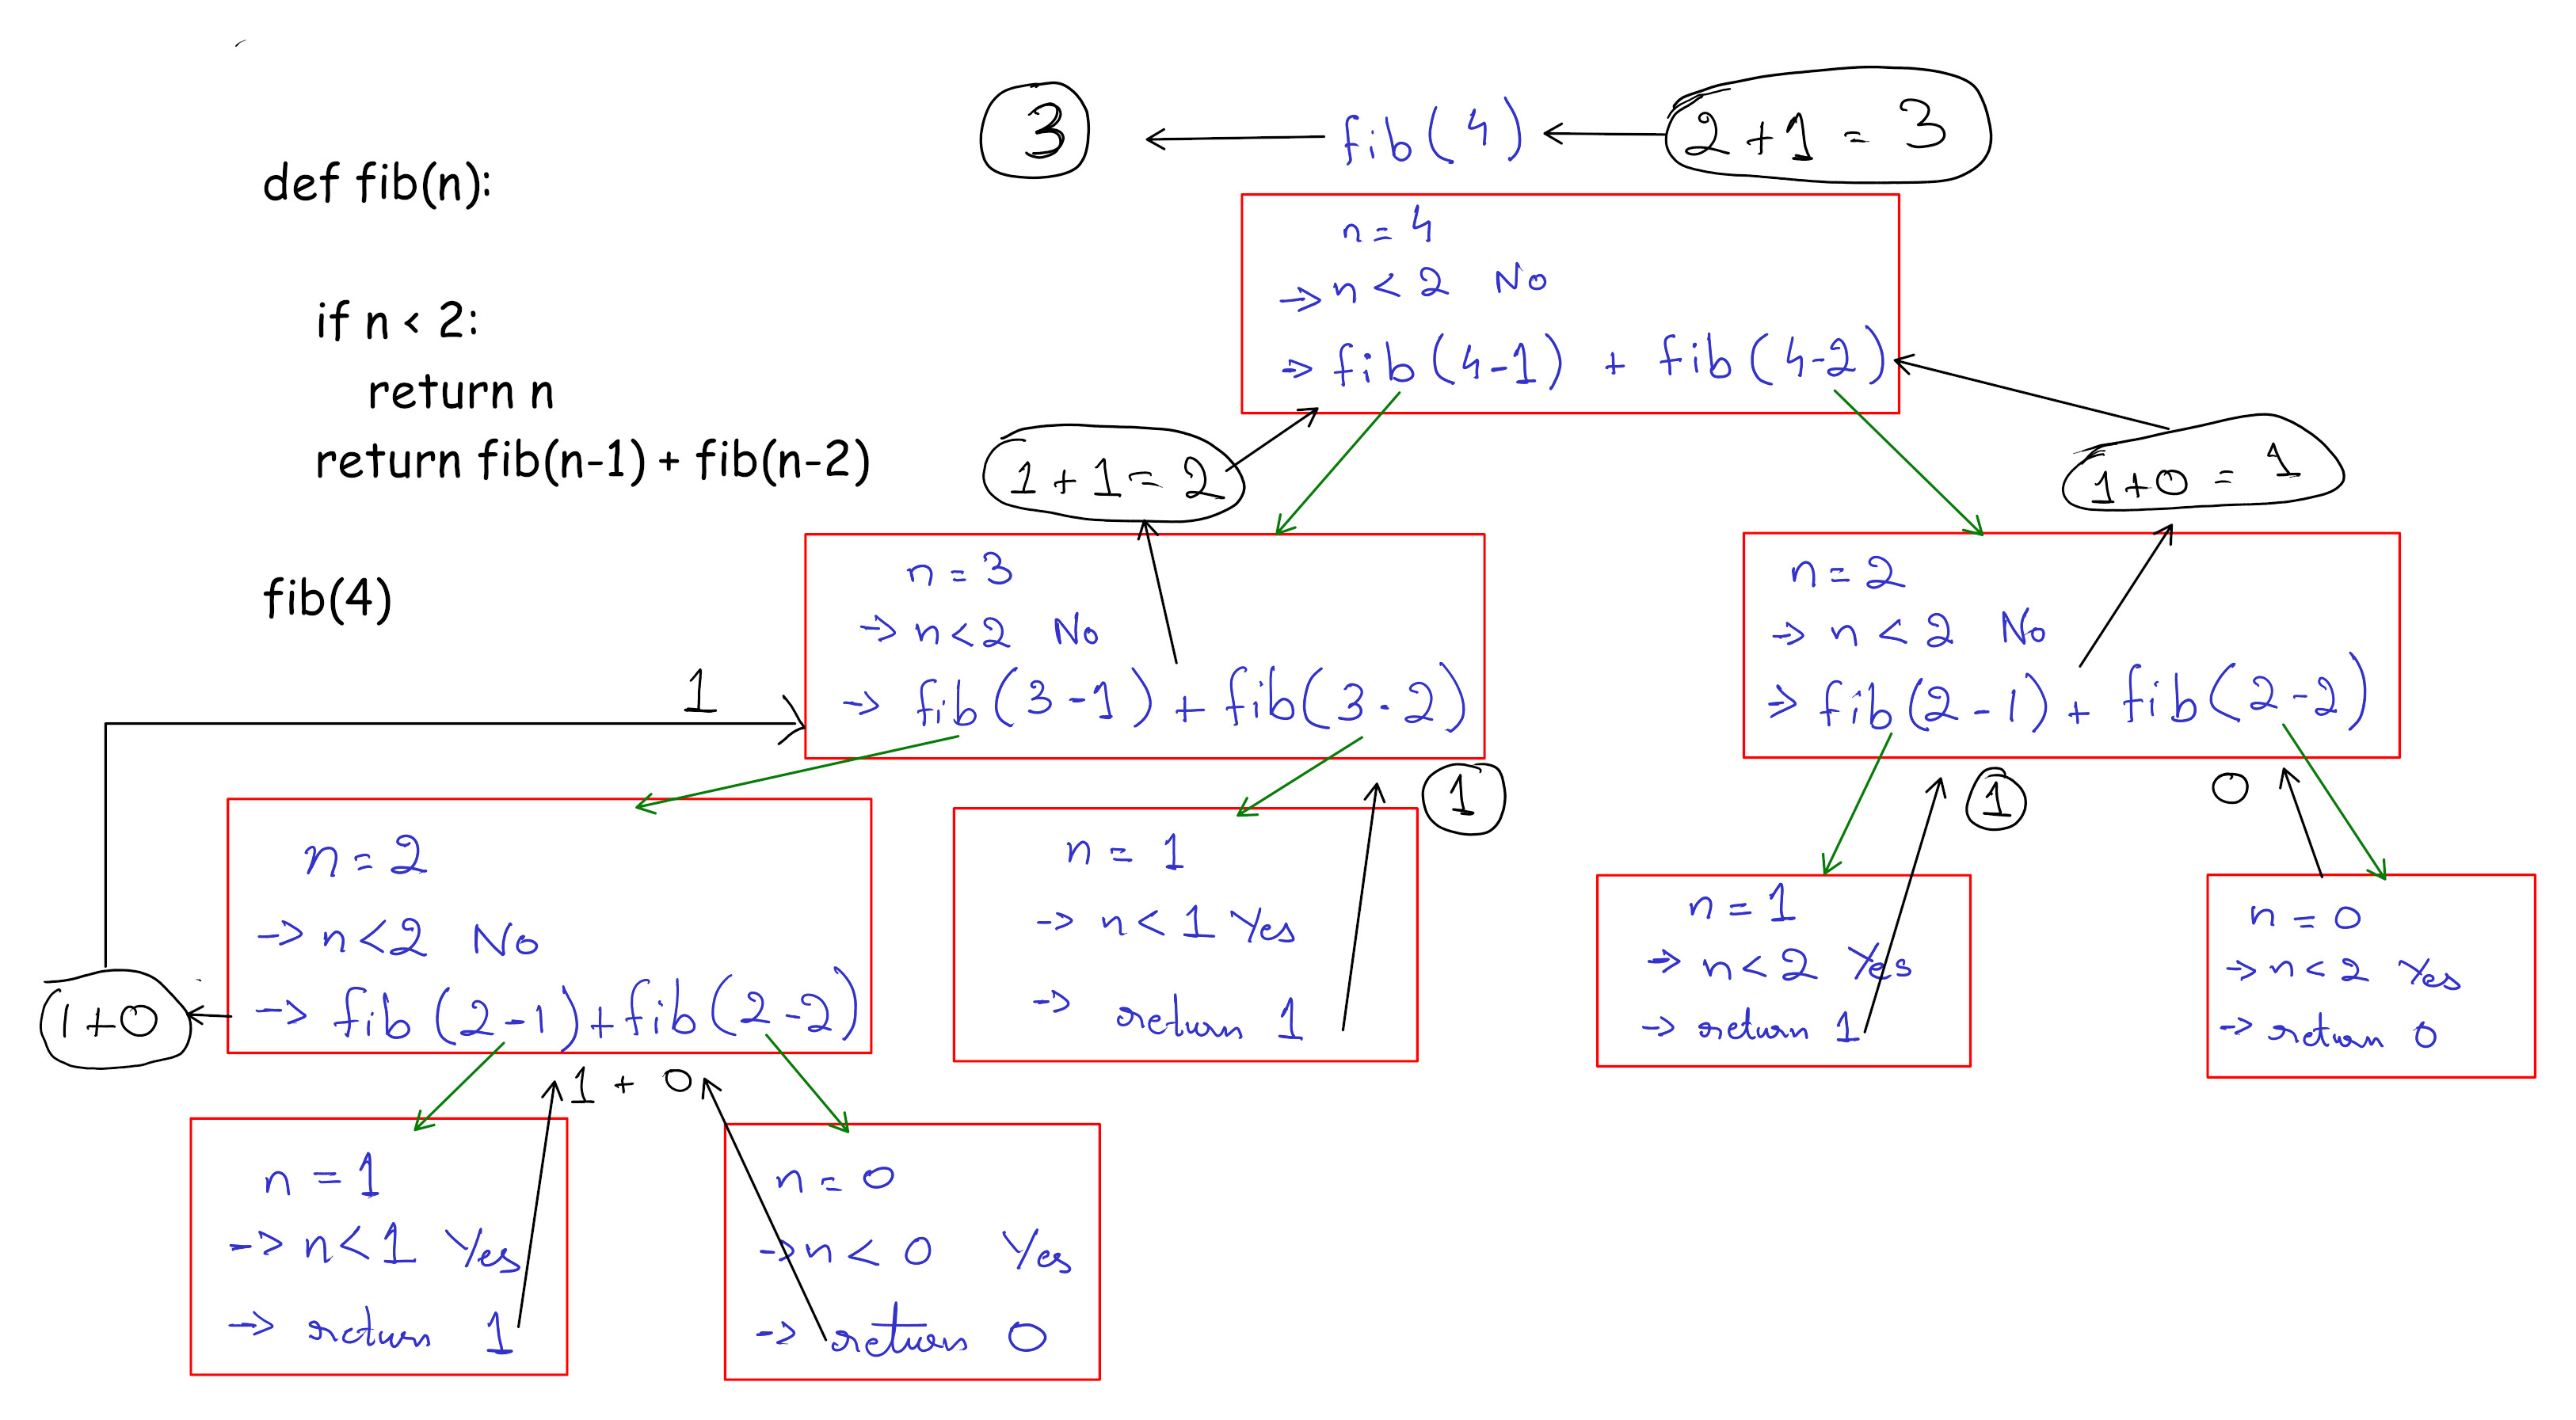 def fib(n):
if n < 2:
return n
return fib(n-1) + fib(n-2)
fib(4)
3
fib(4)
2+1 = 3
n = 4
→ n < 2 No
→ fib(4-1) + fib(4-2)
1+1=2
1+0 = 1
n = 3
→ n<2 No
→ fib(3-1) + fib(3-2)
1
n = 2
→ n < 2 No
→ fib(2-1) + fib(2-2)
n = 2
→ n<2 No
→ fib(2-1)+fib(2-2)
1+0
1
n = 1
→ n < 1 Yes
→ return 1
1
0
n = 1
→ n < 2 Yes
→ return 1
n = 0
→ n < 2 Yes
→ return 0
1 + 0
n = 1
→ n<1 Yes
→ return 1
n = 0
→ n < 0 Yes
→ return 0